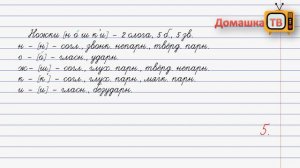 Домашка
ТВ
Ножки [н о́ ш к' и] - 2 слога, 5 б., 5 зв.
н - [н] - согл., звонк. непарн., твёрд. парн.
о - [о́] - гласн., ударн.
ж - [ш] - согл., глух. парн., твёрд. непарн.
к - [к'] - согл., глух. парн., мягк. парн.
и - [и] - гласн., безударн.
5.